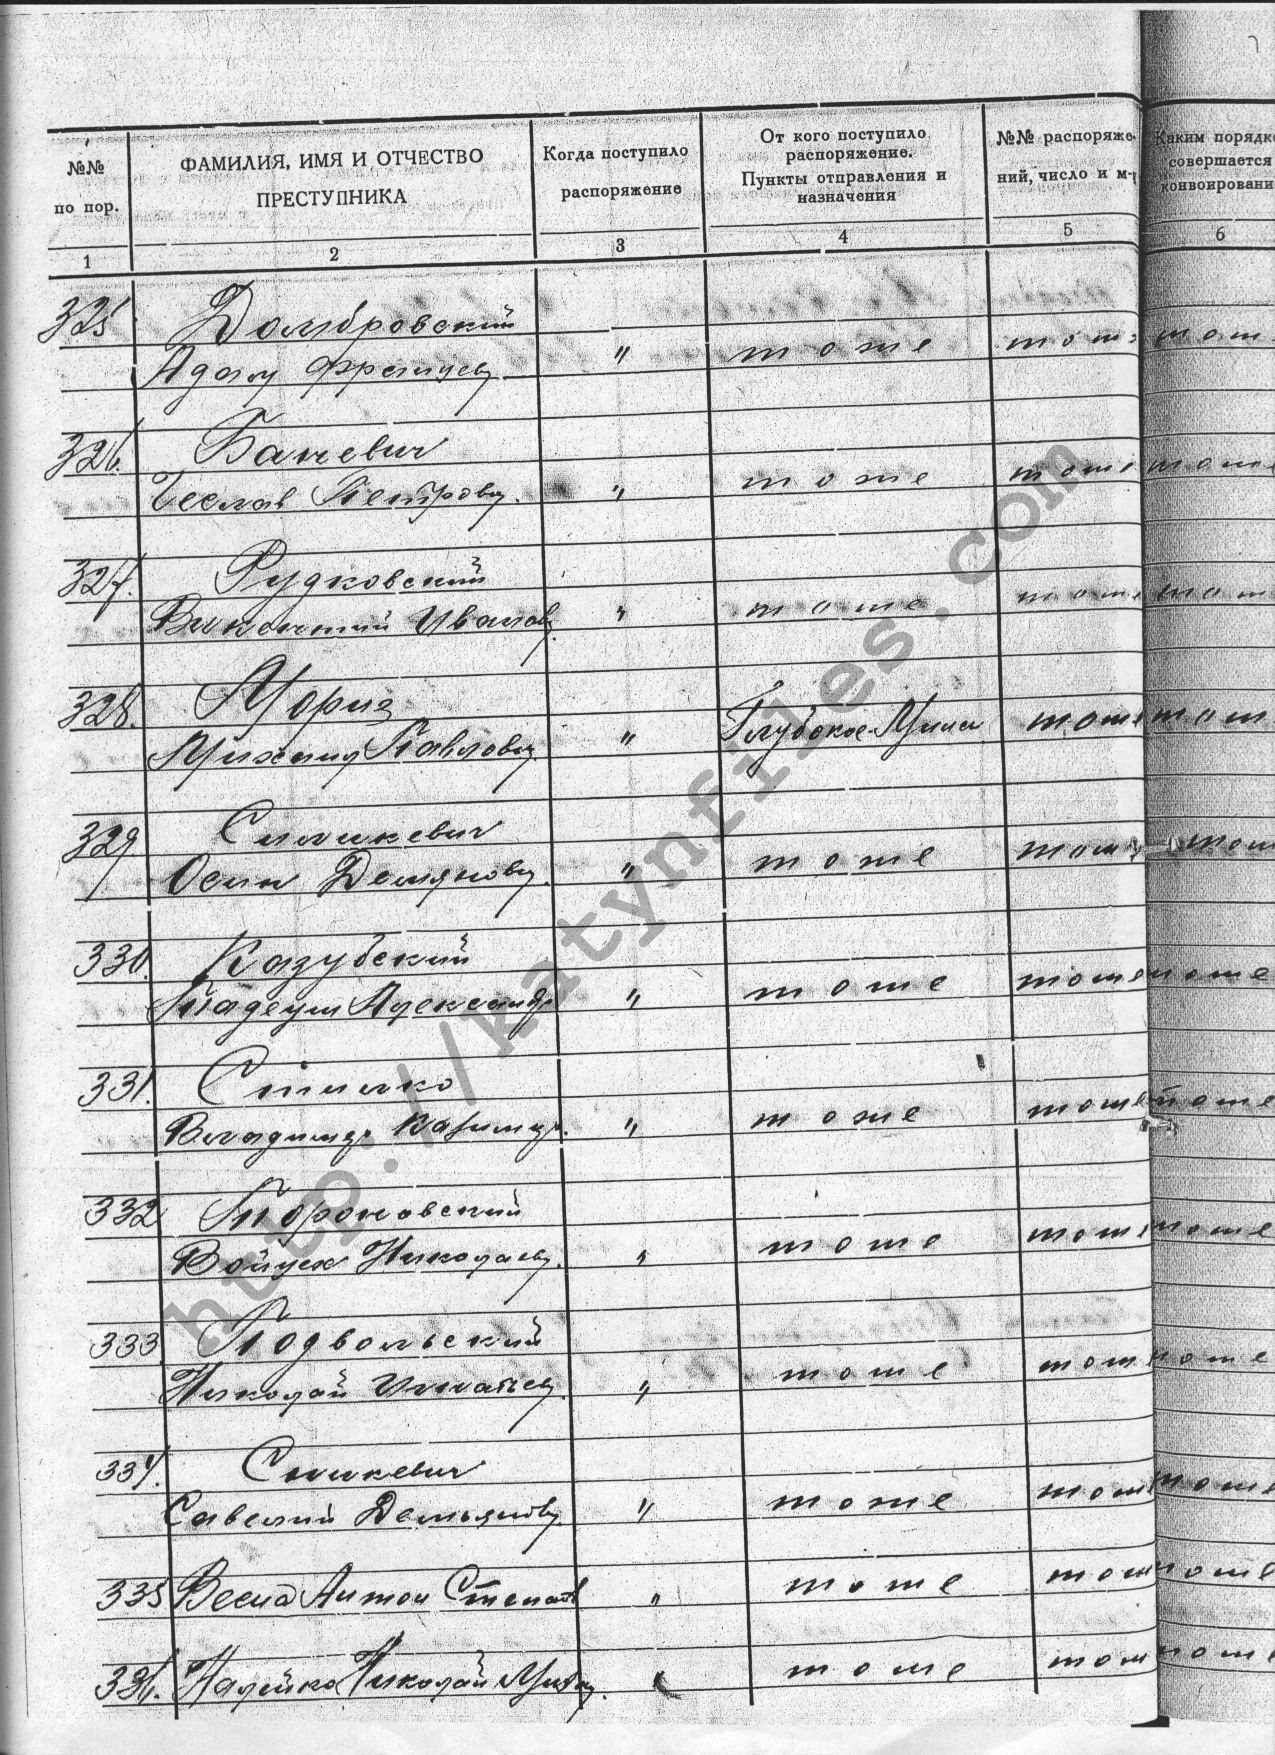 №№
по пор.
ФАМИЛИЯ, ИМЯ И ОТЧЕСТВО
ПРЕСТУПНИКА
Когда поступило
распоряжение
От кого поступило
распоряжение.
Пункты отправления и
назначения
№№ распоряже-
ний, число и м-
Каким порядк
совершается
конвоировани
1 2 3 4 5 6
325 Домбровский
Адам Францев. " тоже тоже тож
326. Баневич
Чеслав Петрович. " тоже тоже тоже
327. Рудковский
Викентий Иванов. " тоже тоже тож
328. Мориз
Михаил Павлович " Глубокое-Минск тоже тож
329. Симкевич
Осип Демянович. " тоже тоже тож
330. Казубский
Тадеуш Александр. " тоже тоже тоже
331. Стилко
Владимир " тоже тоже тоже
332
Войцех Николаев. " тоже тоже тоже
333 Подвольский
Николай Игнатьев. " тоже тож тоже
334. Симкевич
Савелий Демьянов. " тоже тож тоже
335 Весна Антон Степан " тоже тож тоже
336. Налейко Николай " тоже тож тоже
http://katynfiles.com